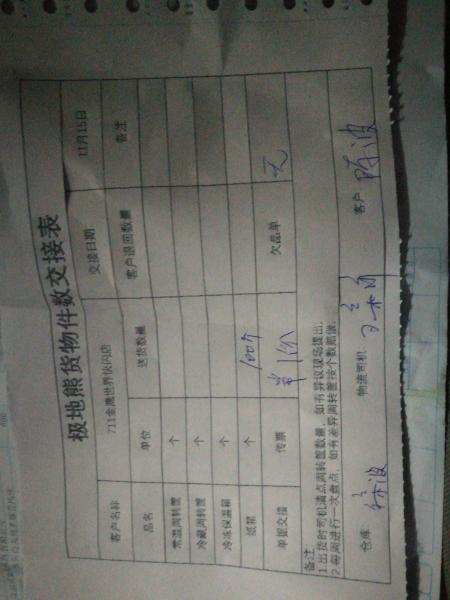 极地熊货物件数交接表
客户名称 711金鹰世界快闪店 交接日期 11月15日
品名 单位 送货数量 客户退回数量 备注
常温周转筐 个
冷藏周转筐 个
冷冻保温箱 个
纸箱 个 100个
单据交接 传票 常1份 欠品单 无
备注
1.出货时司机清点周转筐数量,如有异议现场提出,
2.每周进行一次盘点,如有差异周转筐按个数赔偿,
仓库 物流司机 客户 陈波